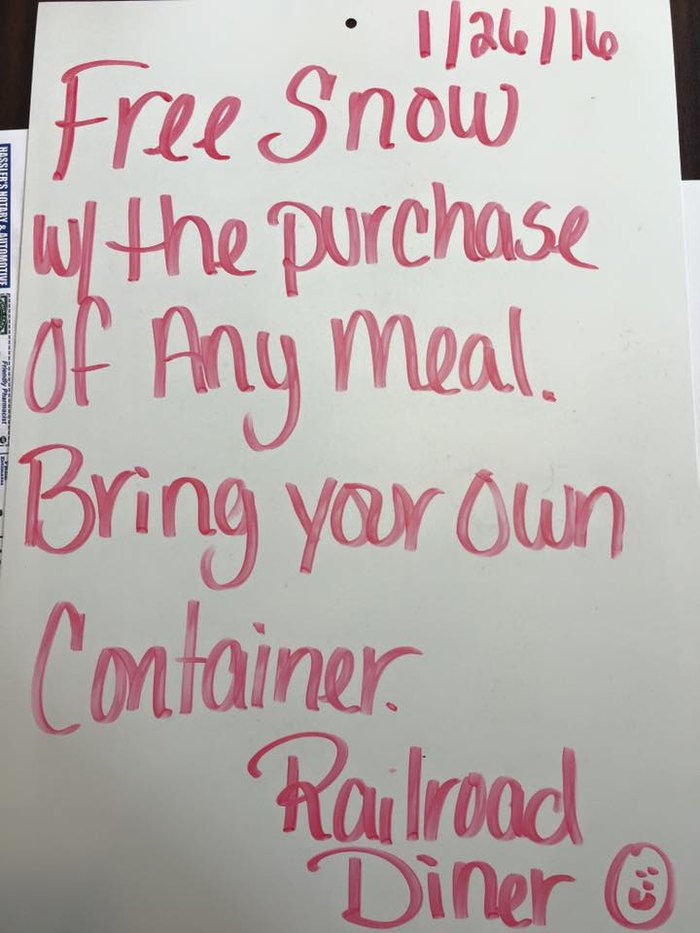 1/26/16
Free Snow
w/ the purchase
of Any meal.
Bring your own
Container.
Railroad
Diner
HASSLER'S NOTARY & AUTOMOTIVE
Friendly Pharmacist